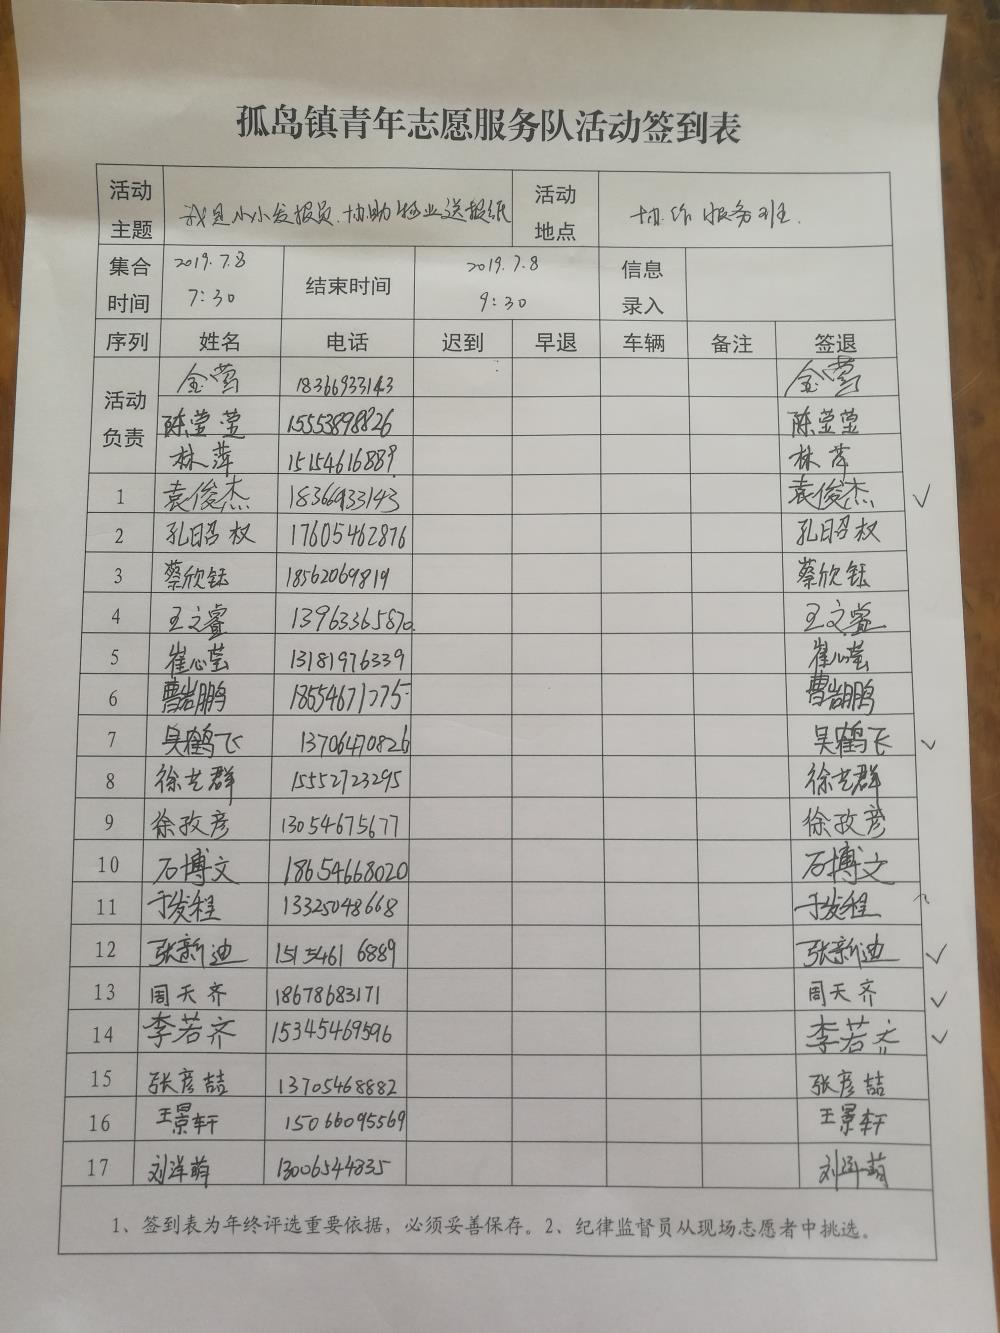 孤岛镇青年志愿服务队活动签到表
活动主题 我是小小发报员.协助物业送报纸 活动地点 协作服务班.
集合时间 2019.7.8 7:30 结束时间 2019.7.8 9:30 信息录入
序列 姓名 电话 迟到 早退 车辆 备注 签退
活动负责 金莺 18366933143 金莺
陈莹莹 15553898826 陈莹莹
林萍 15154616889 林萍
1 袁俊杰 18366933143 袁俊杰 ✓
2 孔昭权 17605462876 孔昭权
3 蔡欣钰 18562069819 蔡欣钰
4 王文睿 13963365870 王文睿
5 崔心莹 13181976339 崔心莹
6 曹岩鹏 18554671775 曹岩鹏
7 吴鹤飞 13706470826 吴鹤飞 ✓
8 徐艺群 15552723295 徐艺群
9 徐孜彦 13054675677 徐孜彦
10 石博文 18654668020 石博文
11 于发程 13325048668 于发程
12 张新迪 15154616889 张新迪 ✓
13 周天齐 18678683171 周天齐 ✓
14 李若齐 15345469596 李若齐 ✓
15 张彦喆 13705468882 张彦喆
16 王景轩 15066095569 王景轩
17 刘洋萌 13006544835 刘洋萌
1、签到表为年终评选重要依据，必须妥善保存。2、纪律监督员从现场志愿者中挑选。